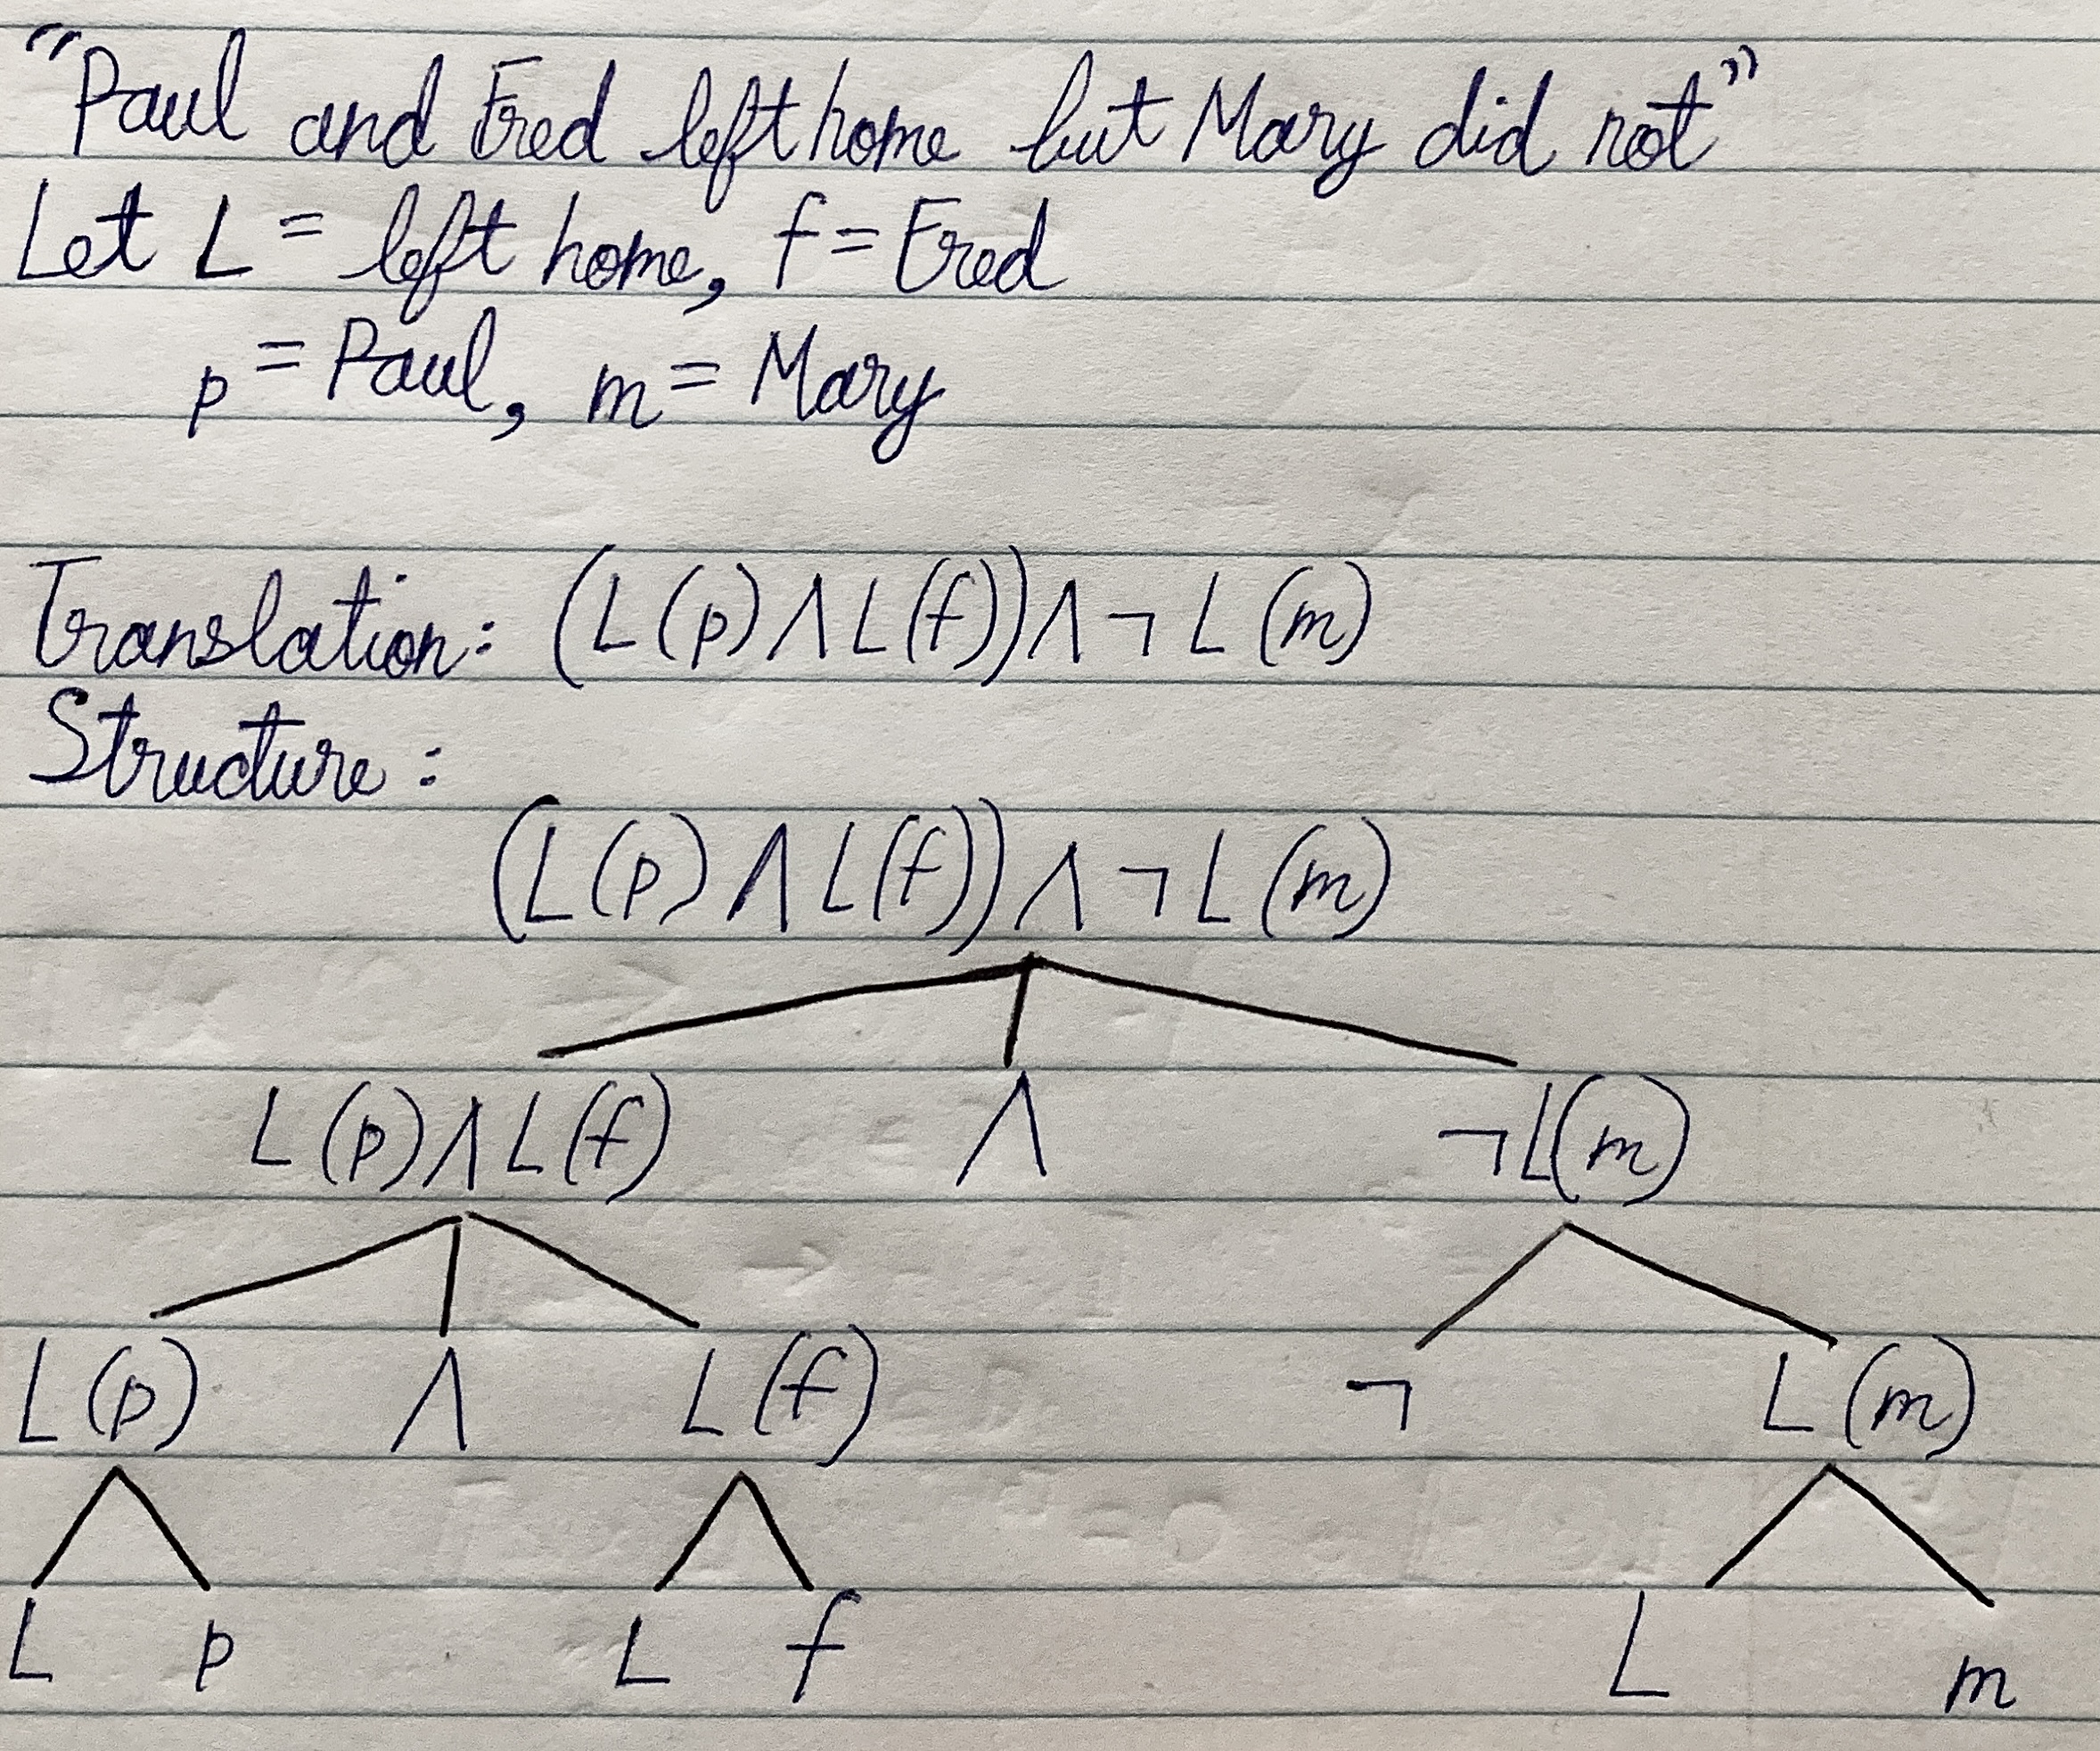 "Paul and Fred left home but Mary did not"
Let L = left home, f = Fred
p = Paul, m = Mary
Translation: (L(p) ∧ L(f)) ∧ ¬ L(m)
Structure:
(L(p) ∧ L(f)) ∧ ¬ L(m)
L(p) ∧ L(f) ∧ ¬L(m)
L(p) ∧ L(f) ¬ L(m)
L p L f L m